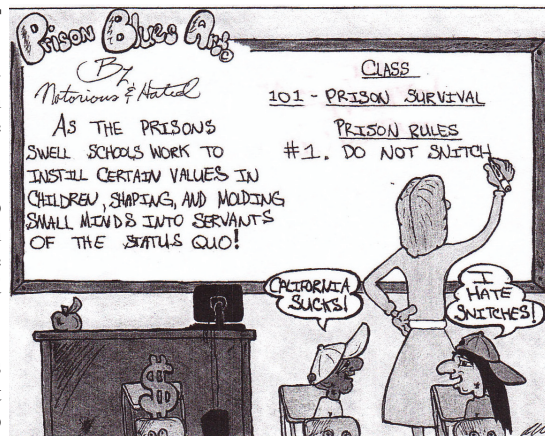 Prison Blues Art©
By
Notorious & Hated
AS THE PRISONS
SWELL SCHOOLS WORK TO
INSTILL CERTAIN VALUES IN
CHILDREN, SHAPING, AND MOLDING
SMALL MINDS INTO SERVANTS
OF THE STATUS QUO!
CLASS
101 - PRISON SURVIVAL
PRISON RULES
#1. DO NOT SNITCH
CALIFORNIA
SUCKS!
I
HATE
SNITCHES!
$